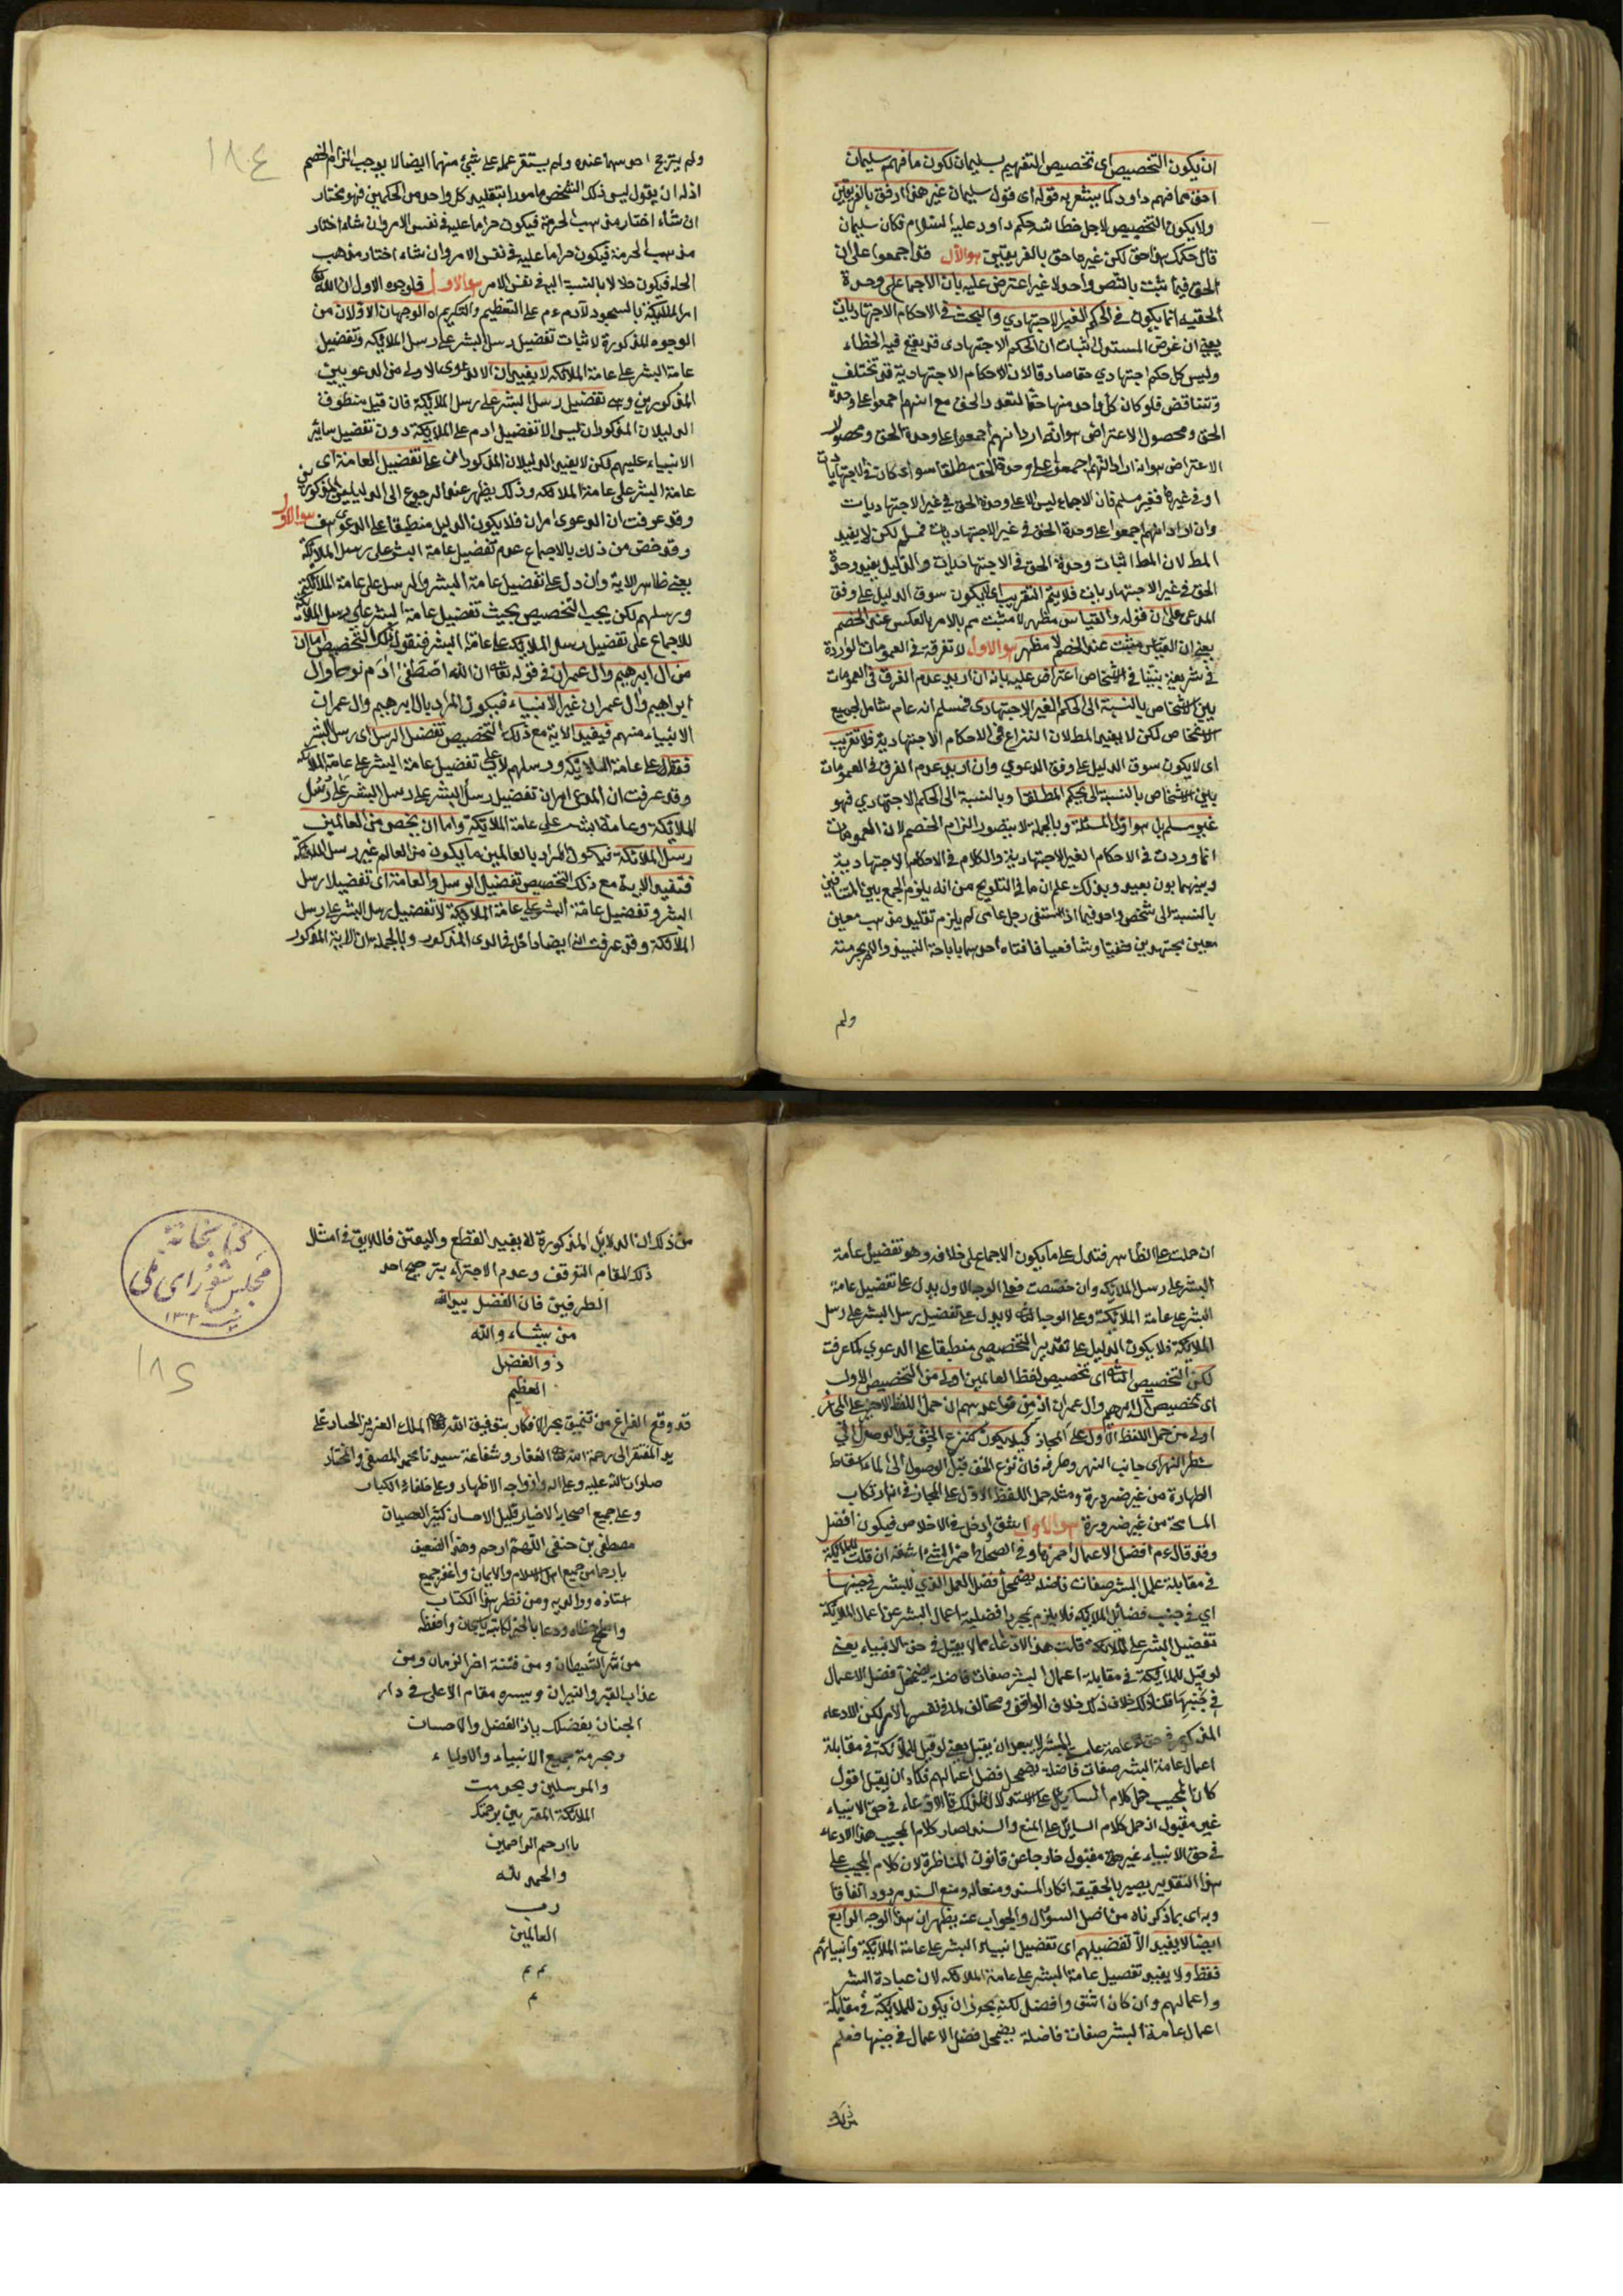 ان يكون التخصيص اى تخصيص التفهيم بسليمان لكون ما فهم سليمان
احق مما فهم داود كما يشعر به قوله اى قول سليمان غير هذا ارفق بالفريقين
ولا يكون التخصيص لاجل خطائه حكم داود عليه السلام فكان سليمان
قال حكمك هذا حق لكن غيرها حق بالفريقين هو الاول فقد اجمعوا على ان
الحق فيما ثبت بالنص واحد لا غير اعترض عليه بان الاجماع على وحدة
الحقية انما يكون فى الحكم الغير الاجتهادي والبحث فى الاحكام الاجتهاديات
يعنى ان غرض المستدل اثبات ان الحكم الاجتهادى قد يقع فيه الخطاء
وليس كل حكم اجتهادي حقا صادقا لان الاحكام الاجتهادية قد تختلف
وتتناقض فلو كان كل واحد منها حقا لتعدد الحق مع انهم اجمعوا على وحدة
الحق ومحصول الاعتراض هو انه اراد انهم اجمعوا على وحدة الحق ومحصول
الاعتراض هو انه اراد انهم اجمعوا على وحدة الحق مطلقا سواى كان فى الاجتهاديات
او فى غيرها فغير مسلم فان الاجماع ليس الا على وحدة الحق فى غير الاجتهاديات
وان اراد انهم اجمعوا على وحدة الحق فى غير الاجتهاديات فمسلم لكن لا يفيد
المط لان المط اثبات وحدة الحق فى الاجتهاديات والدليل يفيد وحدة
الحق فى غير الاجتهاديات فلا يتم التقريب اى لا يكون سوق الدليل على وفق
المدعى على ان قوله والقياس مظهر لا مثبت مم بالامر بالعكس عند الخصم
يعنى ان القياس مثبت عند الخصم لا مظهر هو الاول لا تفرقة فى العمومات الواردة
فى شريعة نبينا فى الاشخاص اعتراض عليه بانه ان اريد عدم الفرق فى العمومات
بين الاشخاص بالنسبة الى الحكم الغير الاجتهادى فمسلم انه عام شامل لجميع
الاشخاص لكن لا يفيد المط لان النزاع فى الاحكام الاجتهادية فلا تقريب
اى لا يكون سوق الدليل على وفق الدعوي وان اريد عدم الفرق فى العمومات
بين الاشخاص بالنسبة الى الحكم المطلق وبالنسبة الى الحكم الاجتهادي فهو
غير مسلم بل هو اول المسئلة وبالجملة لا يتصور الزام الخصم لان العمومات
انما وردت فى الاحكام الغير الاجتهادية والكلام فى الاحكام الاجتهادية
وبينهما بون بعيد وبذلك علم ان ما فى التلويح من انه يلزم الجمع بين المتنافيين
بالنسبة الى شخص واحد فيما اذا استفتى رجل عامى لم يلزم تقليد مذهب معين
معين مجتهدين حنفيا وشافعيا فافتاه احدهما باباحة النبيذ والاخر بحرمته
ولم
١٨٤
ولم يترجح احدهما عنده ولم يستقر عمله على شئ منهما ايضا لا يوجب الزام الخصم
اذ له ان يقول ليس ذلك الشخص مامورا بتقليد كل واحد من الحكمين فهو مختار
ان شاء اختار مذهب الحرمة فيكون حراما عليه فى نفس الامر وان شاء اختار
مذهب الحرمة فيكون حراما عليه فى نفس الامر وان شاء اختار مذهب
الحل فيكون حلالا بالنسبة اليه فى نفس الامر هو الاول فلوجوه الاول ان الله
امر الملائكة بالسجود لآدم عم على التعظيم والتكريم اه الوجهان الاولان من
الوجوه المذكورة لاثبات تفضيل رسل البشر على رسل الملائكة وتفضيل
عامة البشر على عامة الملائكة لا يفيدان الا الدعوى الاولى من الدعويين
المذكورين وهى تفضيل رسل البشر على رسل الملائكة فان قيل منطوق
الدليلان المذكوران ليس الا تفضيل ادم على الملائكة دون تفضيل سائر
الانبياء عليهم لكن لا يفيد الدليلان المذكوران على تفضيل العامة اى
عامة البشر على عامة الملائكة وذلك يظهر عند الرجوع الى الدليلين المذكورين
وقد عرفت ان الدعوى امران فلا يكون الدليل منطبقا على الدعوى هف هو الاول
وقد خص من ذلك بالاجماع عدم تفضيل عامة البشر على رسل الملائكة
يعنى ظاهر الاية وان دل على تفضيل عامة البشر والرسل على عامة الملائكة
ورسلهم لكن يجب التخصيص بحيث تفضيل عامة البشر على رسل الملائكة
للاجماع على تفضيل رسل الملائكة على عامة البشر فنقول ذلك التخصيص اما ان
من ال ابرهيم وال عمران فى قوله تعا ان الله اصطفى ادم نوحا وال
ابراهيم وال عمران غير الانبياء فيكون المراد بال ابرهيم وال عمران
الانبياء منهم فيفيد الاية مع ذلك التخصيص تفضيل الرسل اى رسل البشر
فقط على عامة الملائكة ورسلهم لا على تفضيل عامة البشر على عامة الملائكة
وقد عرفت ان المدعى امران تفضيل رسل البشر على رسل البشر على رسل
الملائكة وعامة البشر على عامة الملائكة واما ان يخص من العالمين
رسل الملائكة فيكون المراد بالعالمين ما يكون من العالم غير رسل الملائكة
فتفيد الاية مع ذلك التخصيص تفضيل الرسل والعامة اى تفضيلا رسل
البشر وتفضيل عامة البشر على عامة الملائكة لا تفضيل رسل البشر على رسل
الملائكة وقد عرفت انه ايضا داخل فى الدعوى المذكور وبالجملة ان الاية المذكور
ان حملت على الظاهر فتدل على ما يكون الاجماع على خلافه وهو تفضيل عامة
البشر على رسل الملائكة وان خصصت فعلى الوجه الاول يدل على تفضيل عامة
البشر على عامة الملائكة وعلى الوجه الثانى لا يدل على تفضيل رسل البشر على رسل
الملائكة فلا يكون الدليل على تقدير التخصيص منطبقا على الدعوي كما عرفت
لكن التخصيص الثانى اى تخصيص لفظ العالمين اولى من التخصيص الاول
اى تخصيص ال ابرهيم وال عمران اذ من قواعدهم ان حمل اللفظ الاخير على المجاز
اولى من حمل اللفظ الاول على المجاز كيلا يكون كنزع الخف قبل الوصول الى
شط النهر اى جانب النهر وطرفه فان نزع الخف قبل الوصول الى الماء اسقاط
الطهارة من غير ضرورة ومثله حمل اللفظ الاول على المجاز فى انه ارتكاب
المسامحة من غير ضرورة هو الاول اشق وادخل فى الاخلاص فيكون افضل
وقد قال عم افضل الاعمال احمزها وفى الصحاح احمز الشئ اشقه ان قلت للملائكة
فى مقابلة عمل البشر صفات فاضلة يضمحل فضل العمل الذي للبشر فى جنبها
اى فى جنب فضائل الملائكة فلا يلزم بمجرد افضلية اعمال البشر عن اعمال الملائكة
تفضيل البشر على الملائكة قلت هذا الادعاء مما لا يقبل فى حق الانبياء يعنى
لو قيل للملائكة فى مقابلة اعمال البشر صفات فاضلة يضمحل فضل الاعمال
فى جنبها قلنا ذلك خلاف الواقع ومخالف لما فى نفس الامر لكن الادعاء
المذكور فى حق عامة البشر لا يبعد ان يقبل يعنى لو قيل للملائكة فى مقابلة
اعمال عامة البشر صفات فاضلة يضمحل فضل اعمالهم فكاد ان يقبل اقول
كان المجيب حمل كلام السائل على الاستدلال فلذلك قال الادعاء فى حق الانبياء
غير مقبول اذ حمل كلام السائل على المنع والسند لصار كلام المجيب هذا الادعاء
فى حق الانبياء غير مقبول خارجا عن قانون المناظرة لان كلام المجيب على
هذا التقدير يصير بالحقيقة انكار السند ومنعاله ومنع السند مردود اتفاقا
وبه اى بما ذكرناه من اصل السؤال والجواب عنه يظهر ان هذا الوجه الرابع
ايضا لا يفيد الا تفضيلهم اى تفضيل انبياء البشر على عامة الملائكة وانبيائهم
فقط ولا يفيد تفضيل عامة البشر على عامة الملائكة لان عبادة البشر
واعمالهم وان كان اشق وافضل لكنه يجوز ان يكون للملائكة فى مقابلة
اعمال عامة البشر صفات فاضلة يضمحل فضل الاعمال فى جنبها فعلم
من ذلك
كتابخانة
مجلس شورای ملی
١٣٠٢
١٨٥
من ذلك ان الدلائل المذكورة لا يفيد القطع واليقين فاللايق فى امثال
ذلك المقام التوقف وعدم الاجتراء بترجيح احد
الطرفين فان الفضل بيد الله
من يشاء والله
ذو الفضل
العظيم
قد وقع الفراغ من تنميق بحر الافكار بتوفيق الله الملك العزيز الجبار على
يد المفتقر الى رحمة الله الغفار وشفاعة سيدنا محمد المصطفى والمختار
صلوات الله عليه وعلى اله وازواجه الاطهار وعلى خلفائه الكبار
وعلى جميع اصحابه الاخيار قليل الاحسان كثير العصيان
مصطفى بن حنفى اللهم ارحم وهذا الضعيف
يا ارحم من جميع اهل الاسلام والايمان واغفر جميع
استاذه ووالديه ومن نظر هذا الكتاب
واصلح خطاه ودعا بالخير لكاتبه يا سبحان واحفظه
من شر الشيطان ومن فتنة اخر الزمان ومن
عذاب القبر والنيران ويسره مقام الاعلى فى دار
الجنان بفضلك يا ذا الفضل والاحسان
وبحرمة جميع الانبياء والاولياء
والمرسلين وبحرمت
الملائكة المقربين برحمتك
يا ارحم الراحمين
والحمد لله
رب
العالمين
تم تم
م